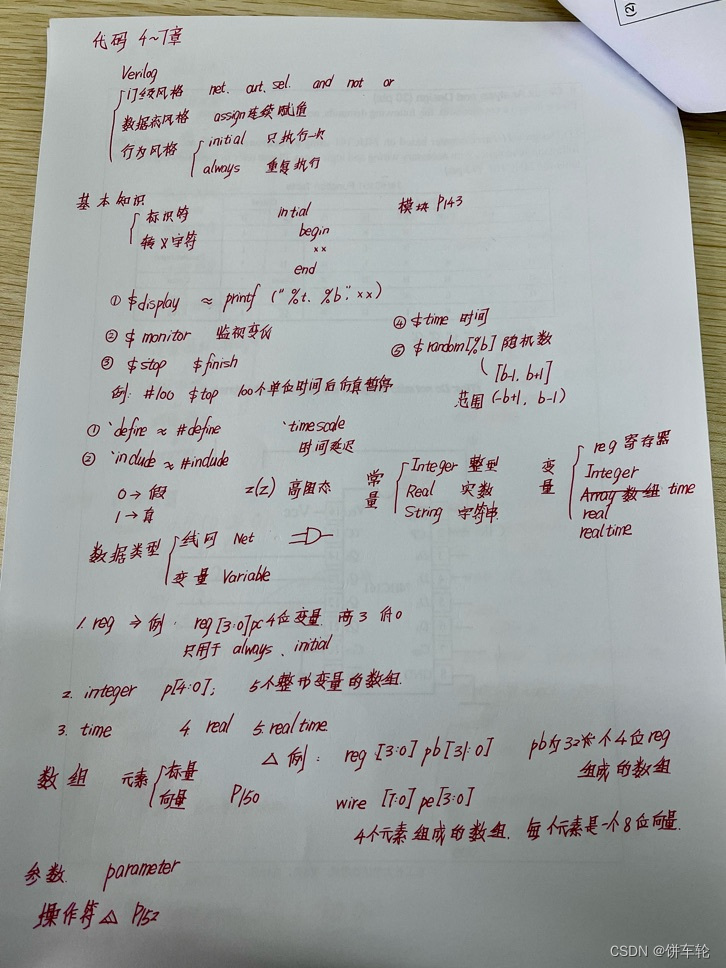 代码 4~7章
Verilog
门级风格 net. out. sel. and not or
数据流风格 assign连续赋值
行为风格 initial 只执行一次
always 重复执行
基本知识 标识符 intial 模块 P143
转义字符 begin
xx
end
① $display ≈ printf ("%t. %b", xx)
② $monitor 监视变化 ④ $time 时间
③ $stop $finish ⑤ $random[%b] 随机数
[b-1, b+1]
例: #100 $top 100个单位时间后仿真暂停 范围 (-b+1, b-1)
① `define ≈ #define `timescale
时间延迟
② `include ≈ #include
0→假 z(Z) 高阻态
1→真
常量 Integer 整型
Real 实数
String 字符串
变量 reg 寄存器
Integer
Array 数组 time
real
realtime
数据类型 线网 Net
变量 Variable
1. reg ⇒ 例: reg [3:0]pc 4位变量. 高3 低0
只用于 always、initial
2. integer p[4:0]; 5个整形变量的数组.
3. time 4 real 5. realtime
数组 元素 标量 向量 P150
△ 例: reg [3:0] pb [31:0] pb为32个4位reg
组成的数组
wire [7:0] pe[3:0]
4个元素组成的数组. 每个元素是一个8位向量.
参数. parameter
操作符 △ P152
(2)
CSDN @饼车轮